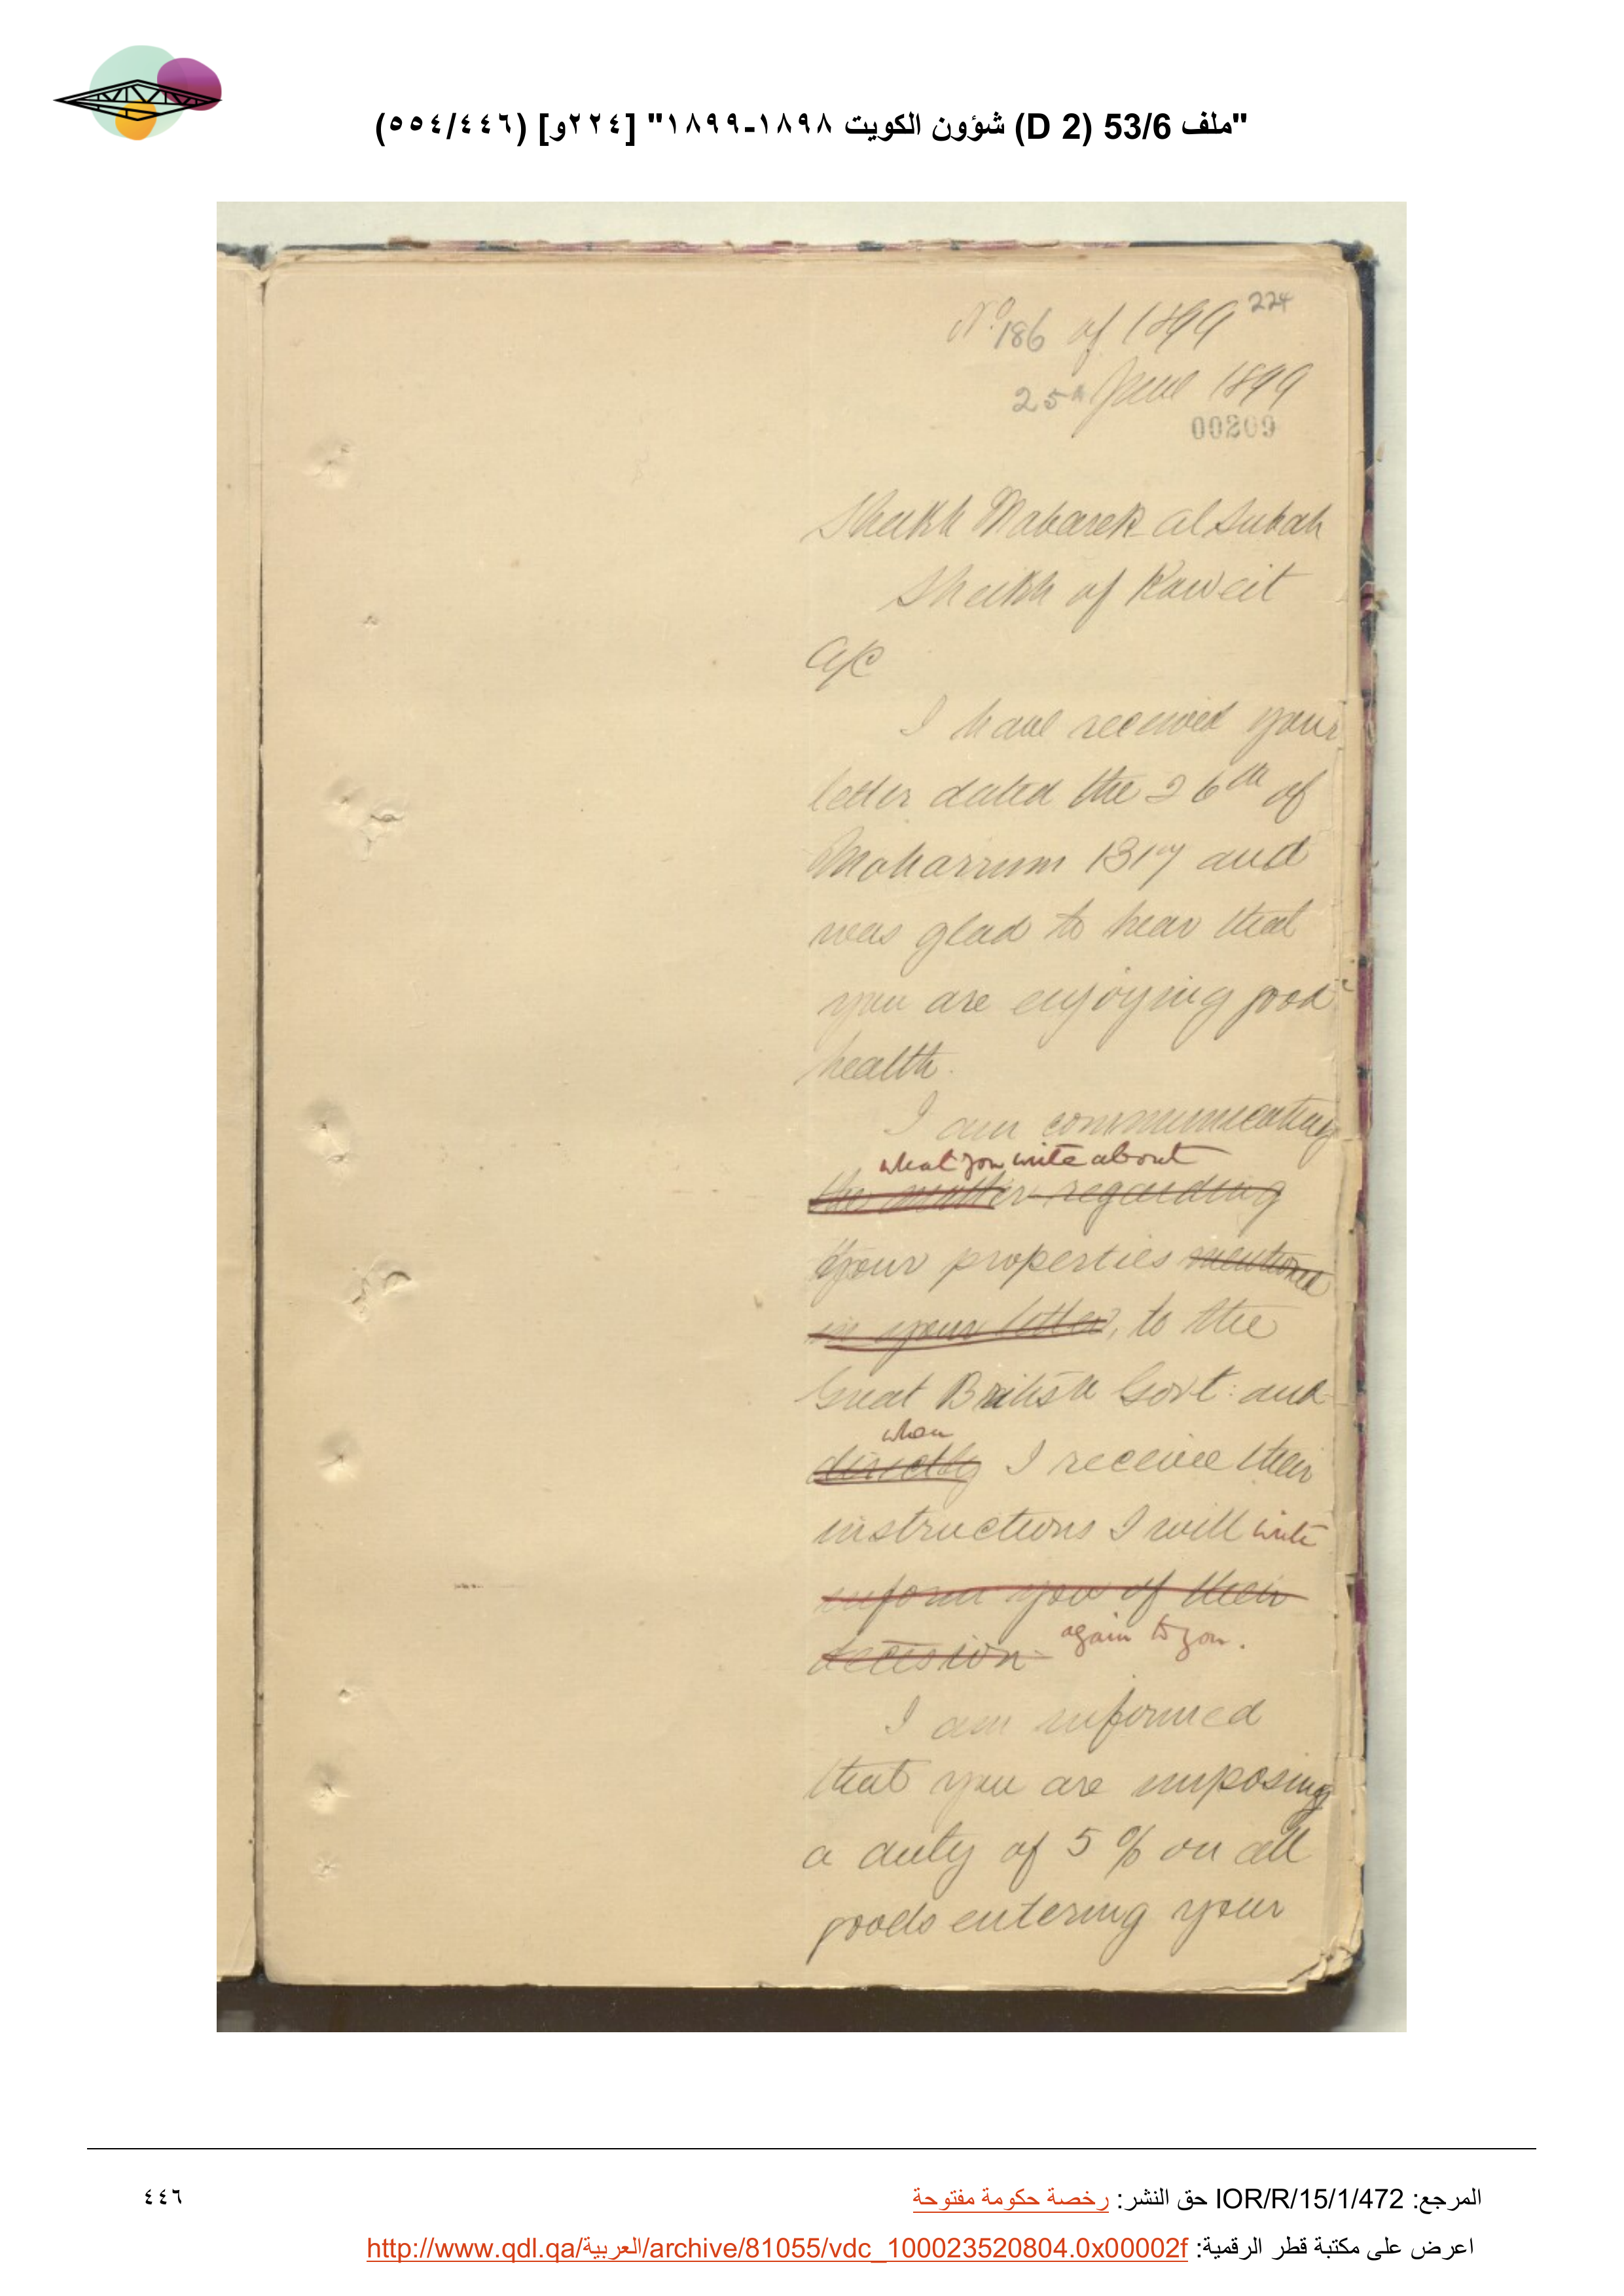 "ملف 53/6 (D 2) شؤون الكويت ١٨٩٨-١٨٩٩" [٢٢٤و] (٥٥٤/٤٤٦)
224
No 186 of 1899
25th June 1899
00209
Sheikh Mabarek al Subah
Sheikh of Kaweit
A/C
I have received your
letter dated the 26th of
Moharrum 1317 and
was glad to hear that
you are enjoying good
health.
I am communicating
what you write about
the matter regarding
your properties mentioned
in your letter, to the
Great British Govt: and
when
directly I receive their
instructions I will write
inform you of their
decision again to you.
I am informed
that you are imposing
a duty of 5 % on all
goods entering your
المرجع: IOR/R/15/1/472 حق النشر: رخصة حكومة مفتوحة
٤٤٦
اعرض على مكتبة قطر الرقمية: http://www.qdl.qa/العربية/archive/81055/vdc_100023520804.0x00002f